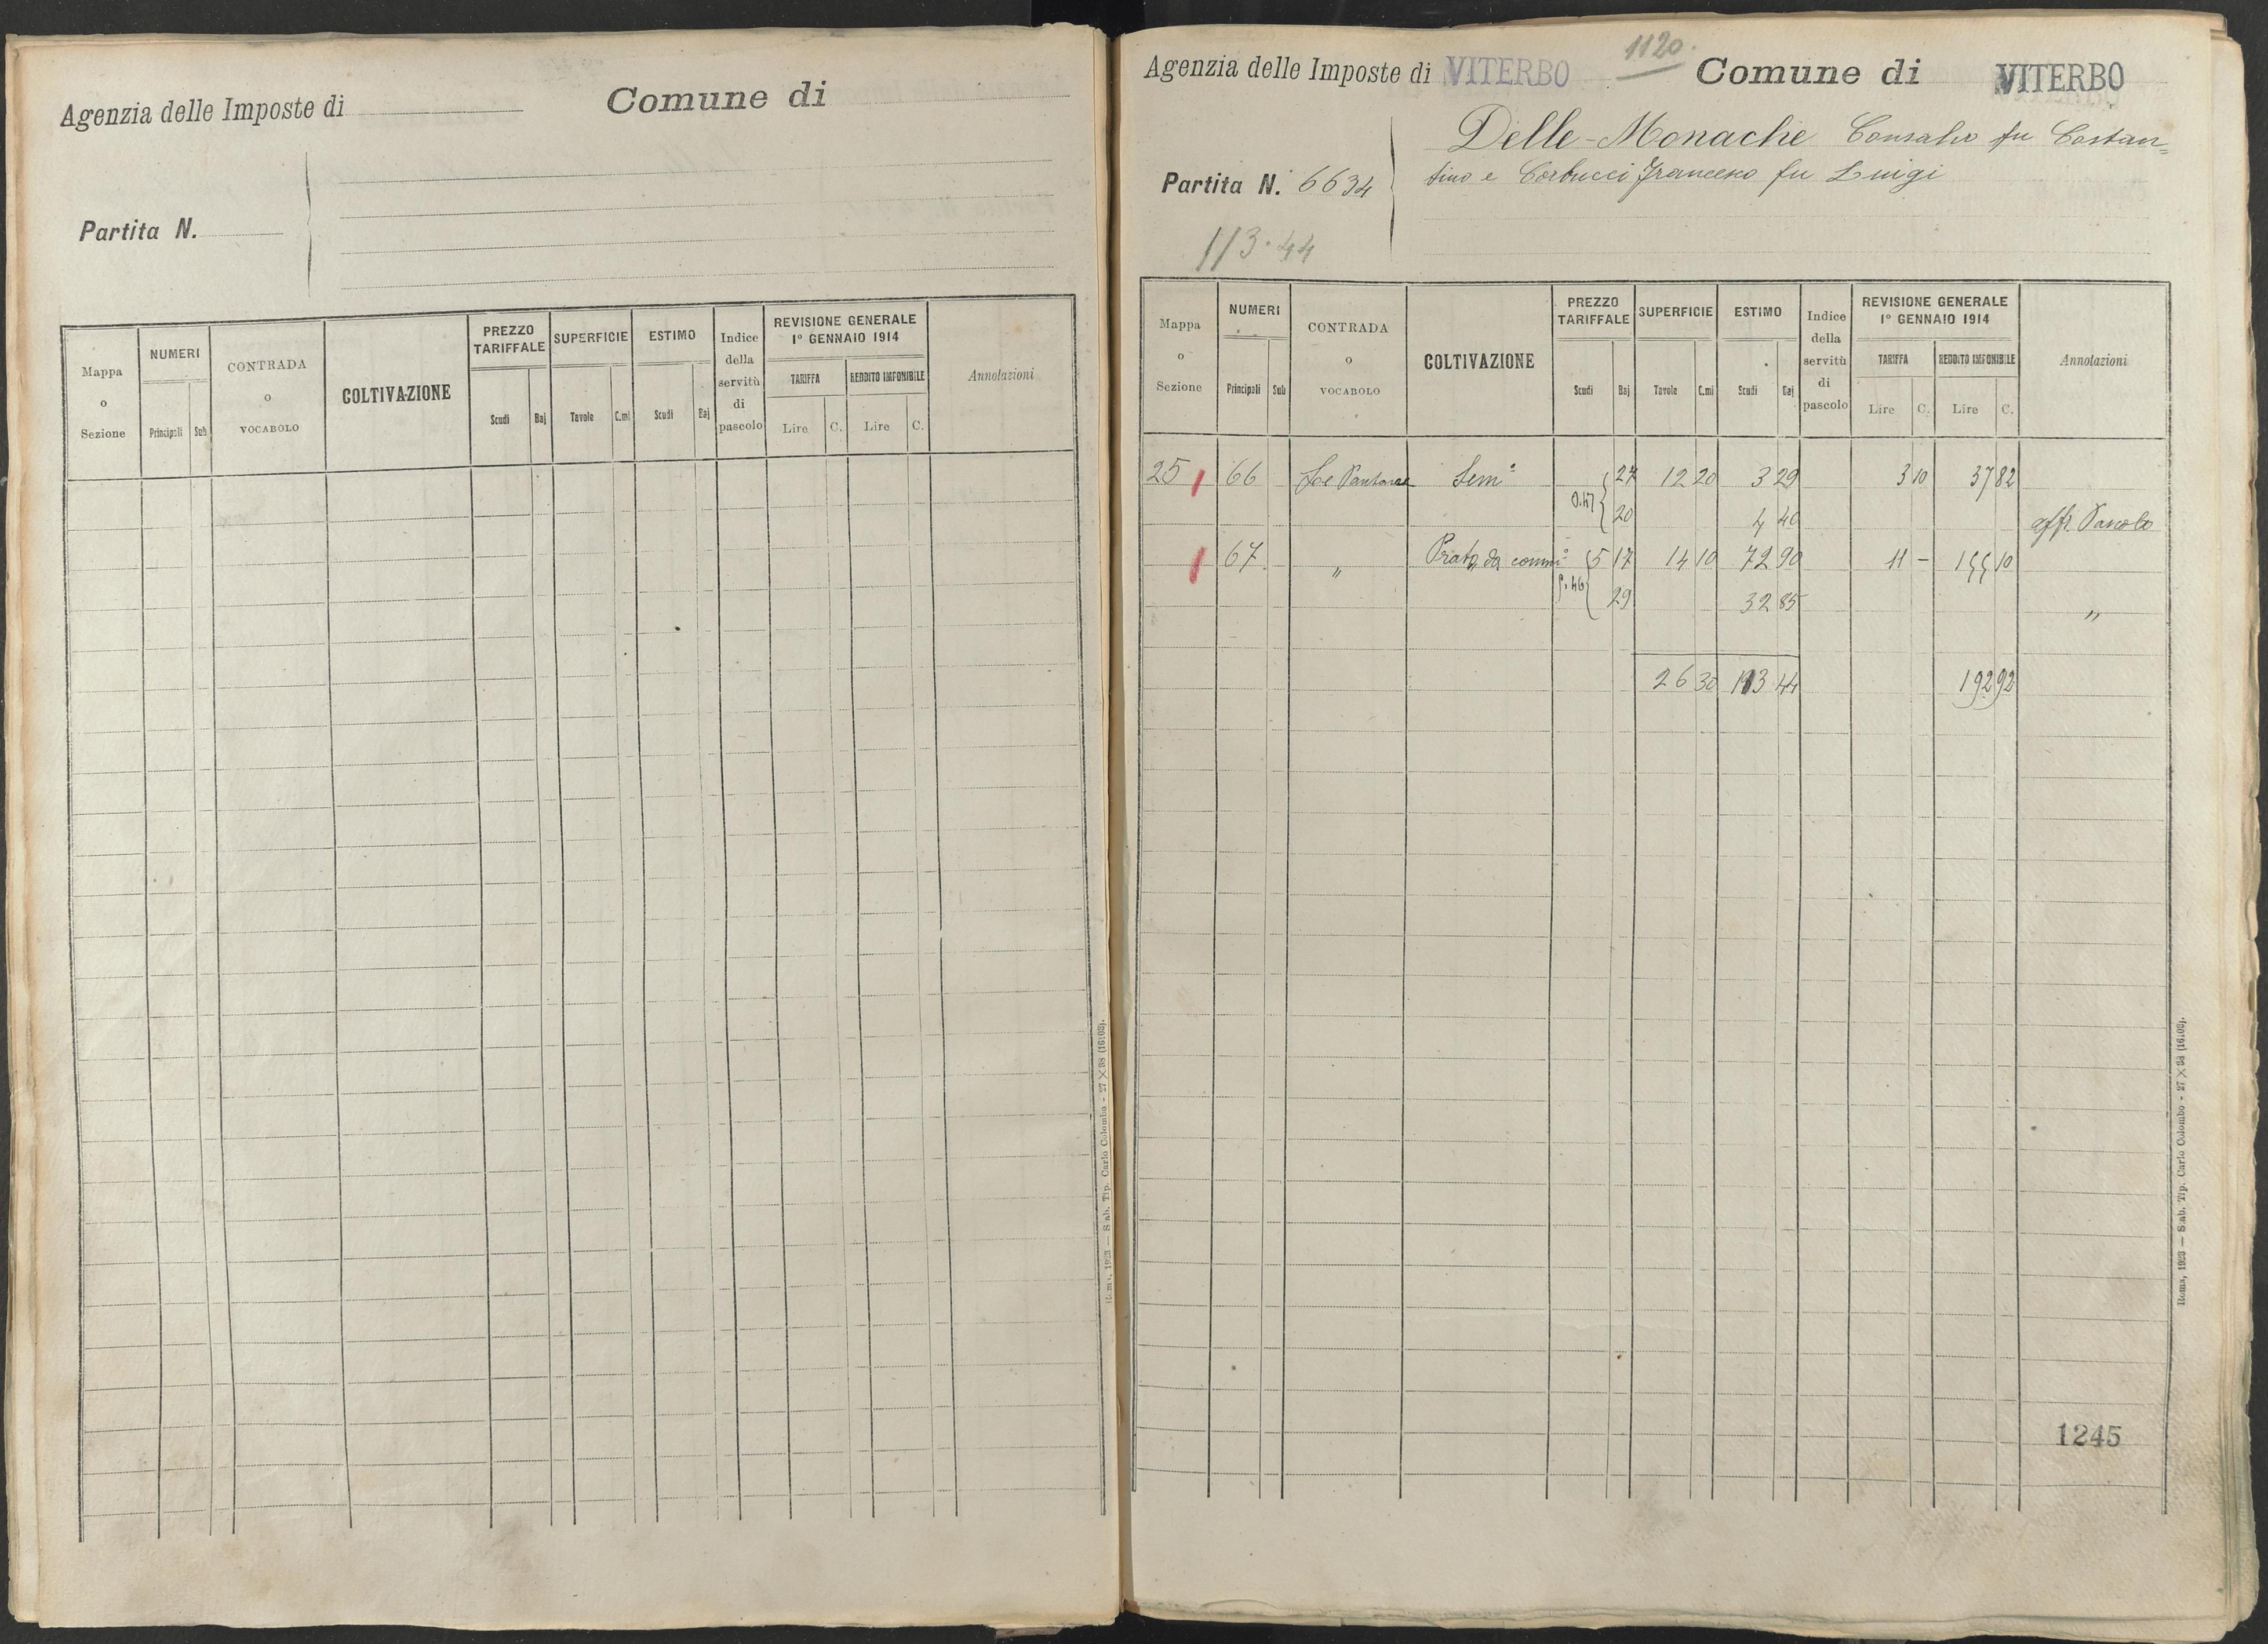 Agenzia delle Imposte di
Comune di
Partita N.
Mappa o Sezione
NUMERI
Principali
Sub
CONTRADA o VOCABOLO
COLTIVAZIONE
PREZZO TARIFFALE
Scudi
Baj
SUPERFICIE
Tavole
C.mi
ESTIMO
Scudi
Baj
Indice della servitù di pascolo
REVISIONE GENERALE
1° GENNAIO 1914
TARIFFA
REDDITO IMPONIBILE
Lire
C.
Lire
C.
Annotazioni
Roma, 1923 — Stab. Tip. Carlo Colombo - 27 × 38 (16103).
1120.
Agenzia delle Imposte di VITERBO
Comune di VITERBO
Delle-Monache Consalvo fu Costan=
Partita N. 6634
tino e Corbucci Francesco fu Luigi
113.44
Mappa o Sezione
NUMERI
Principali
Sub
CONTRADA o VOCABOLO
COLTIVAZIONE
PREZZO TARIFFALE
Scudi
Baj
SUPERFICIE
Tavole
C.mi
ESTIMO
Scudi
Baj
Indice della servitù di pascolo
REVISIONE GENERALE
1° GENNAIO 1914
TARIFFA
REDDITO IMPONIBILE
Lire
C.
Lire
C.
Annotazioni
25 66 Le Sem° 27 12 20 3 29 3 10 37 82
0.47 20 4 40 aff. Pascolo
67 " Prato da 5 17 14 10 72 90 11 - 155 10
5.46 29 32 85 "
26 30 113 44 192 92
1245
Roma, 1923 — Stab. Tip. Carlo Colombo - 27 × 38 (16103).